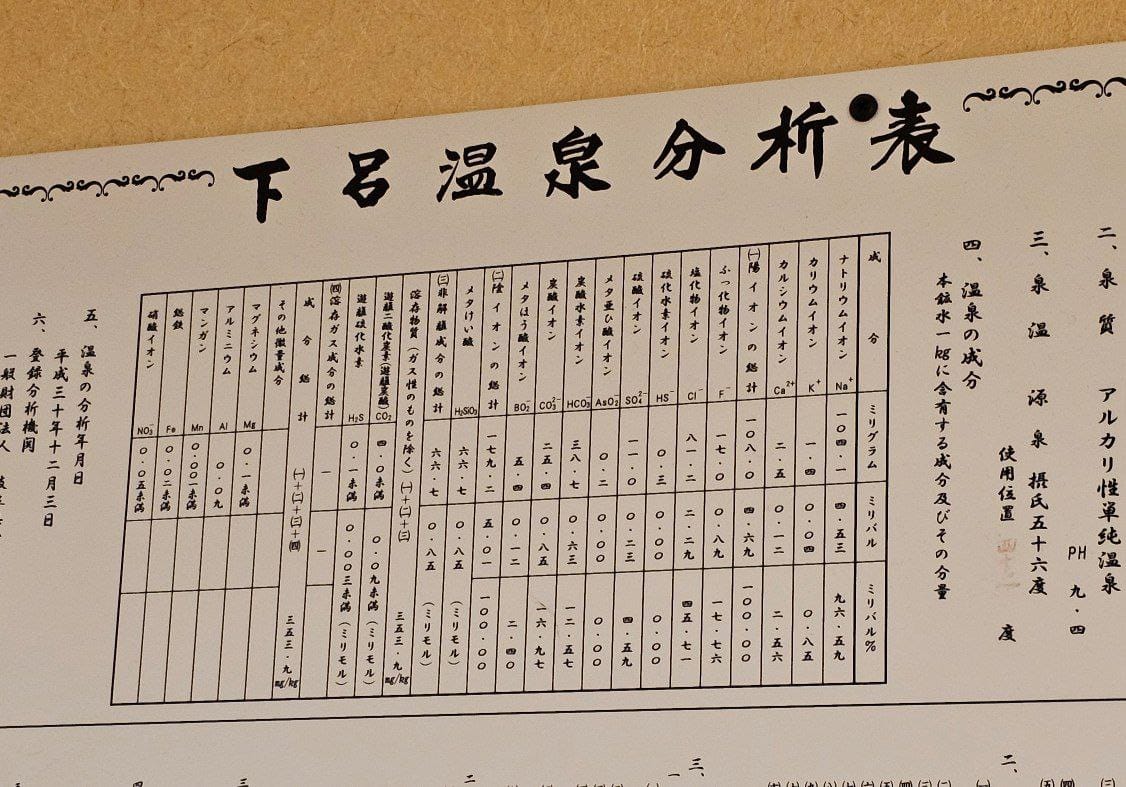 下呂温泉分析表
二、泉質 アルカリ性単純温泉
PH 九・四
三、泉温 源泉 摂氏五十六度
使用位置 度
四、温泉の成分
本鉱水一kgに含有する成分及びその分量
成分 ミリグラム ミリバル ミリバル%
ナトリウムイオン Na⁺ 一〇四・一 四・五三 九六・五九
カリウムイオン K⁺ 一・四 〇・〇四 〇・八五
カルシウムイオン Ca²⁺ 二・五 〇・一二 二・五六
㈠陽イオンの総計 一〇八・〇 四・六九 一〇〇・〇〇
ふっ化物イオン F⁻ 一七・〇 〇・八九 一七・七六
塩化物イオン Cl⁻ 八一・二 二・二九 四五・七一
硫化水素イオン HS⁻ 〇・三 〇・〇〇 〇・〇〇
硫酸イオン SO₄²⁻ 一一・〇 〇・二三 四・五九
メタ亜ひ酸イオン AsO₂⁻ 〇・二 〇・〇〇 〇・〇〇
炭酸水素イオン HCO₃⁻ 三八・七 〇・六三 一二・五七
炭酸イオン CO₃²⁻ 二五・四 〇・八五 一六・九七
メタほう酸イオン BO₂⁻ 五・四 〇・一二 二・四〇
㈡陰イオンの総計 一七九・二 五・〇一 一〇〇・〇〇
メタけい酸 H₂SiO₃ 六六・七 〇・八五 (ミリモル)
㈢非解離成分の総計 六六・七 〇・八五 (ミリモル)
溶存物質(ガス性のものを除く) ㈠+㈡+㈢ 三五三・九mg/kg
遊離二酸化炭素(遊離炭酸) CO₂ 四・〇未満 〇・〇九未満 (ミリモル)
遊離硫化水素 H₂S 〇・一未満 〇・〇〇三未満 (ミリモル)
㈣溶存ガス成分の総計 ― ―
成分総計 ㈠+㈡+㈢+㈣ 三五三・九mg/kg
その他微量成分
マグネシウム Mg 〇・一未満
アルミニウム Al 〇・〇九
マンガン Mn 〇・〇〇一未満
総鉄 Fe 〇・〇二未満
硝酸イオン NO₃⁻ 〇・〇五未満
五、温泉の分析年月日
平成三十年十二月三日
六、登録分析機関
一般財団法人